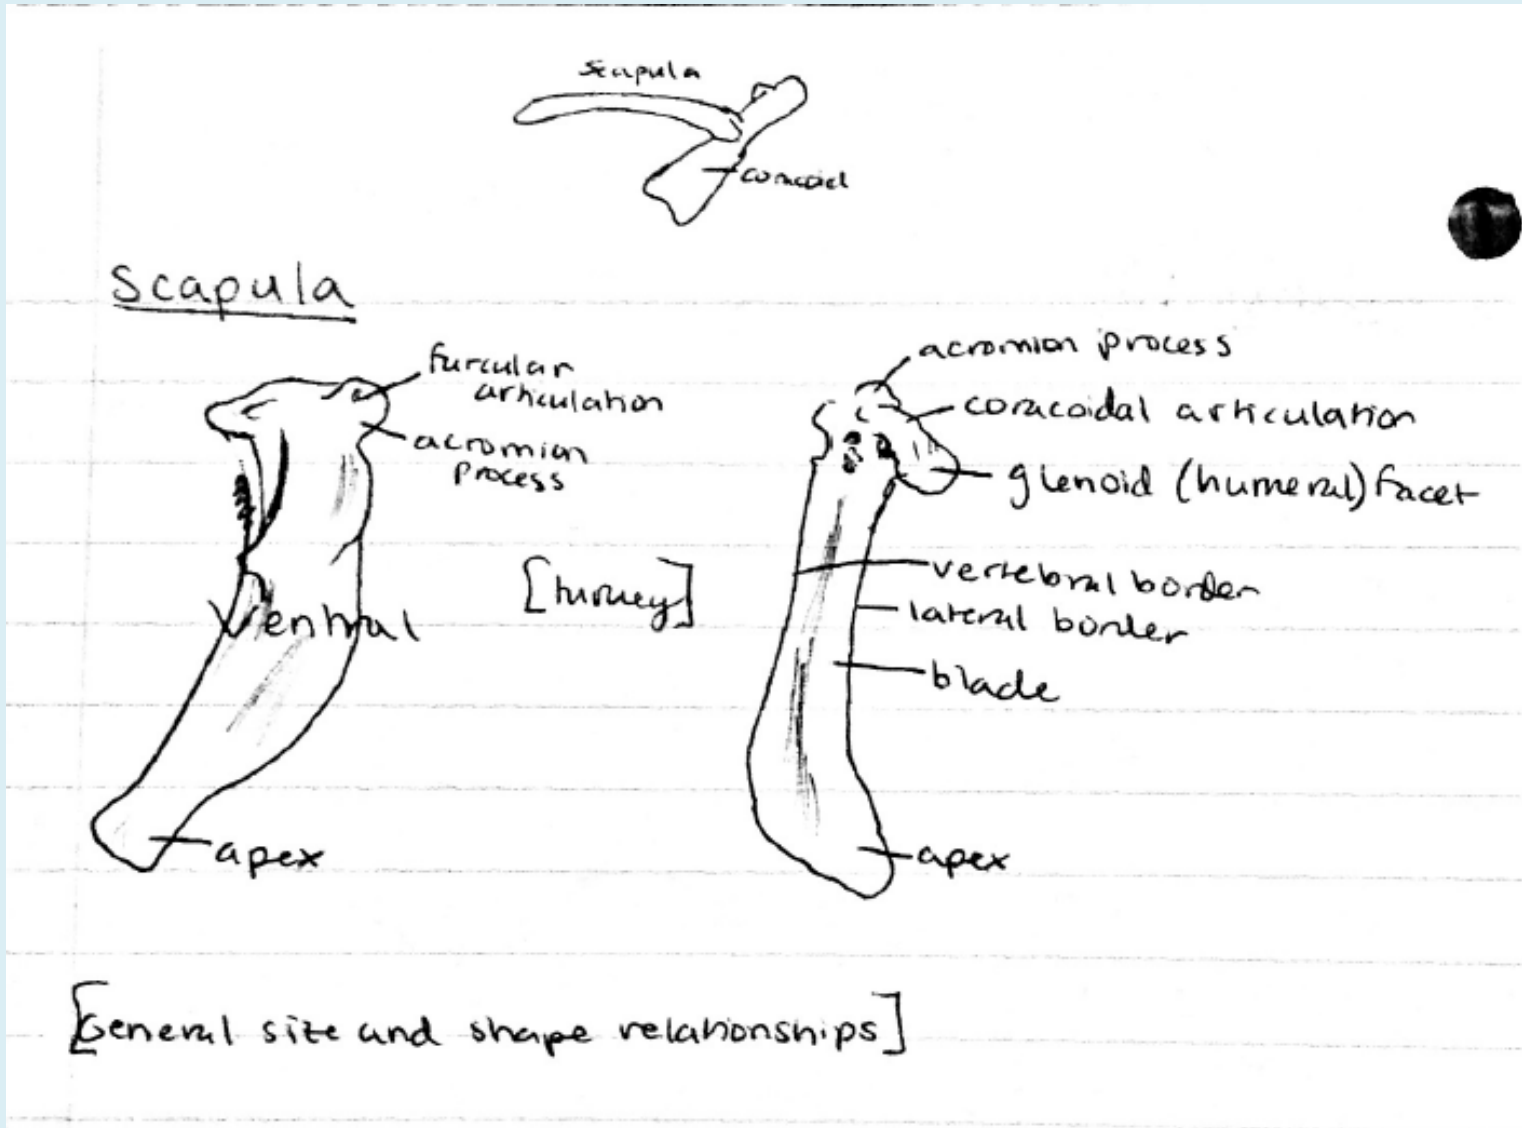 scapula
coracoid
Scapula
furcular
articulation
acromion
process
Ventral
apex
[turkey]
acromion process
coracoidal articulation
glenoid (humeral) facet
vertebral border
lateral border
blade
apex
[General size and shape relationships]